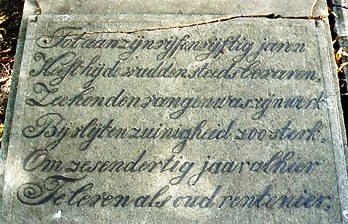 Tot aan zyn vyf en vyftig jaren
Heeft hy de wadden steeds bevaren,
Zeehonden vangen was zyn werk
By slyt en zuinigheid zoo sterk.
Om zes en dertig jaar alhier
Te leven als oud rentenier.